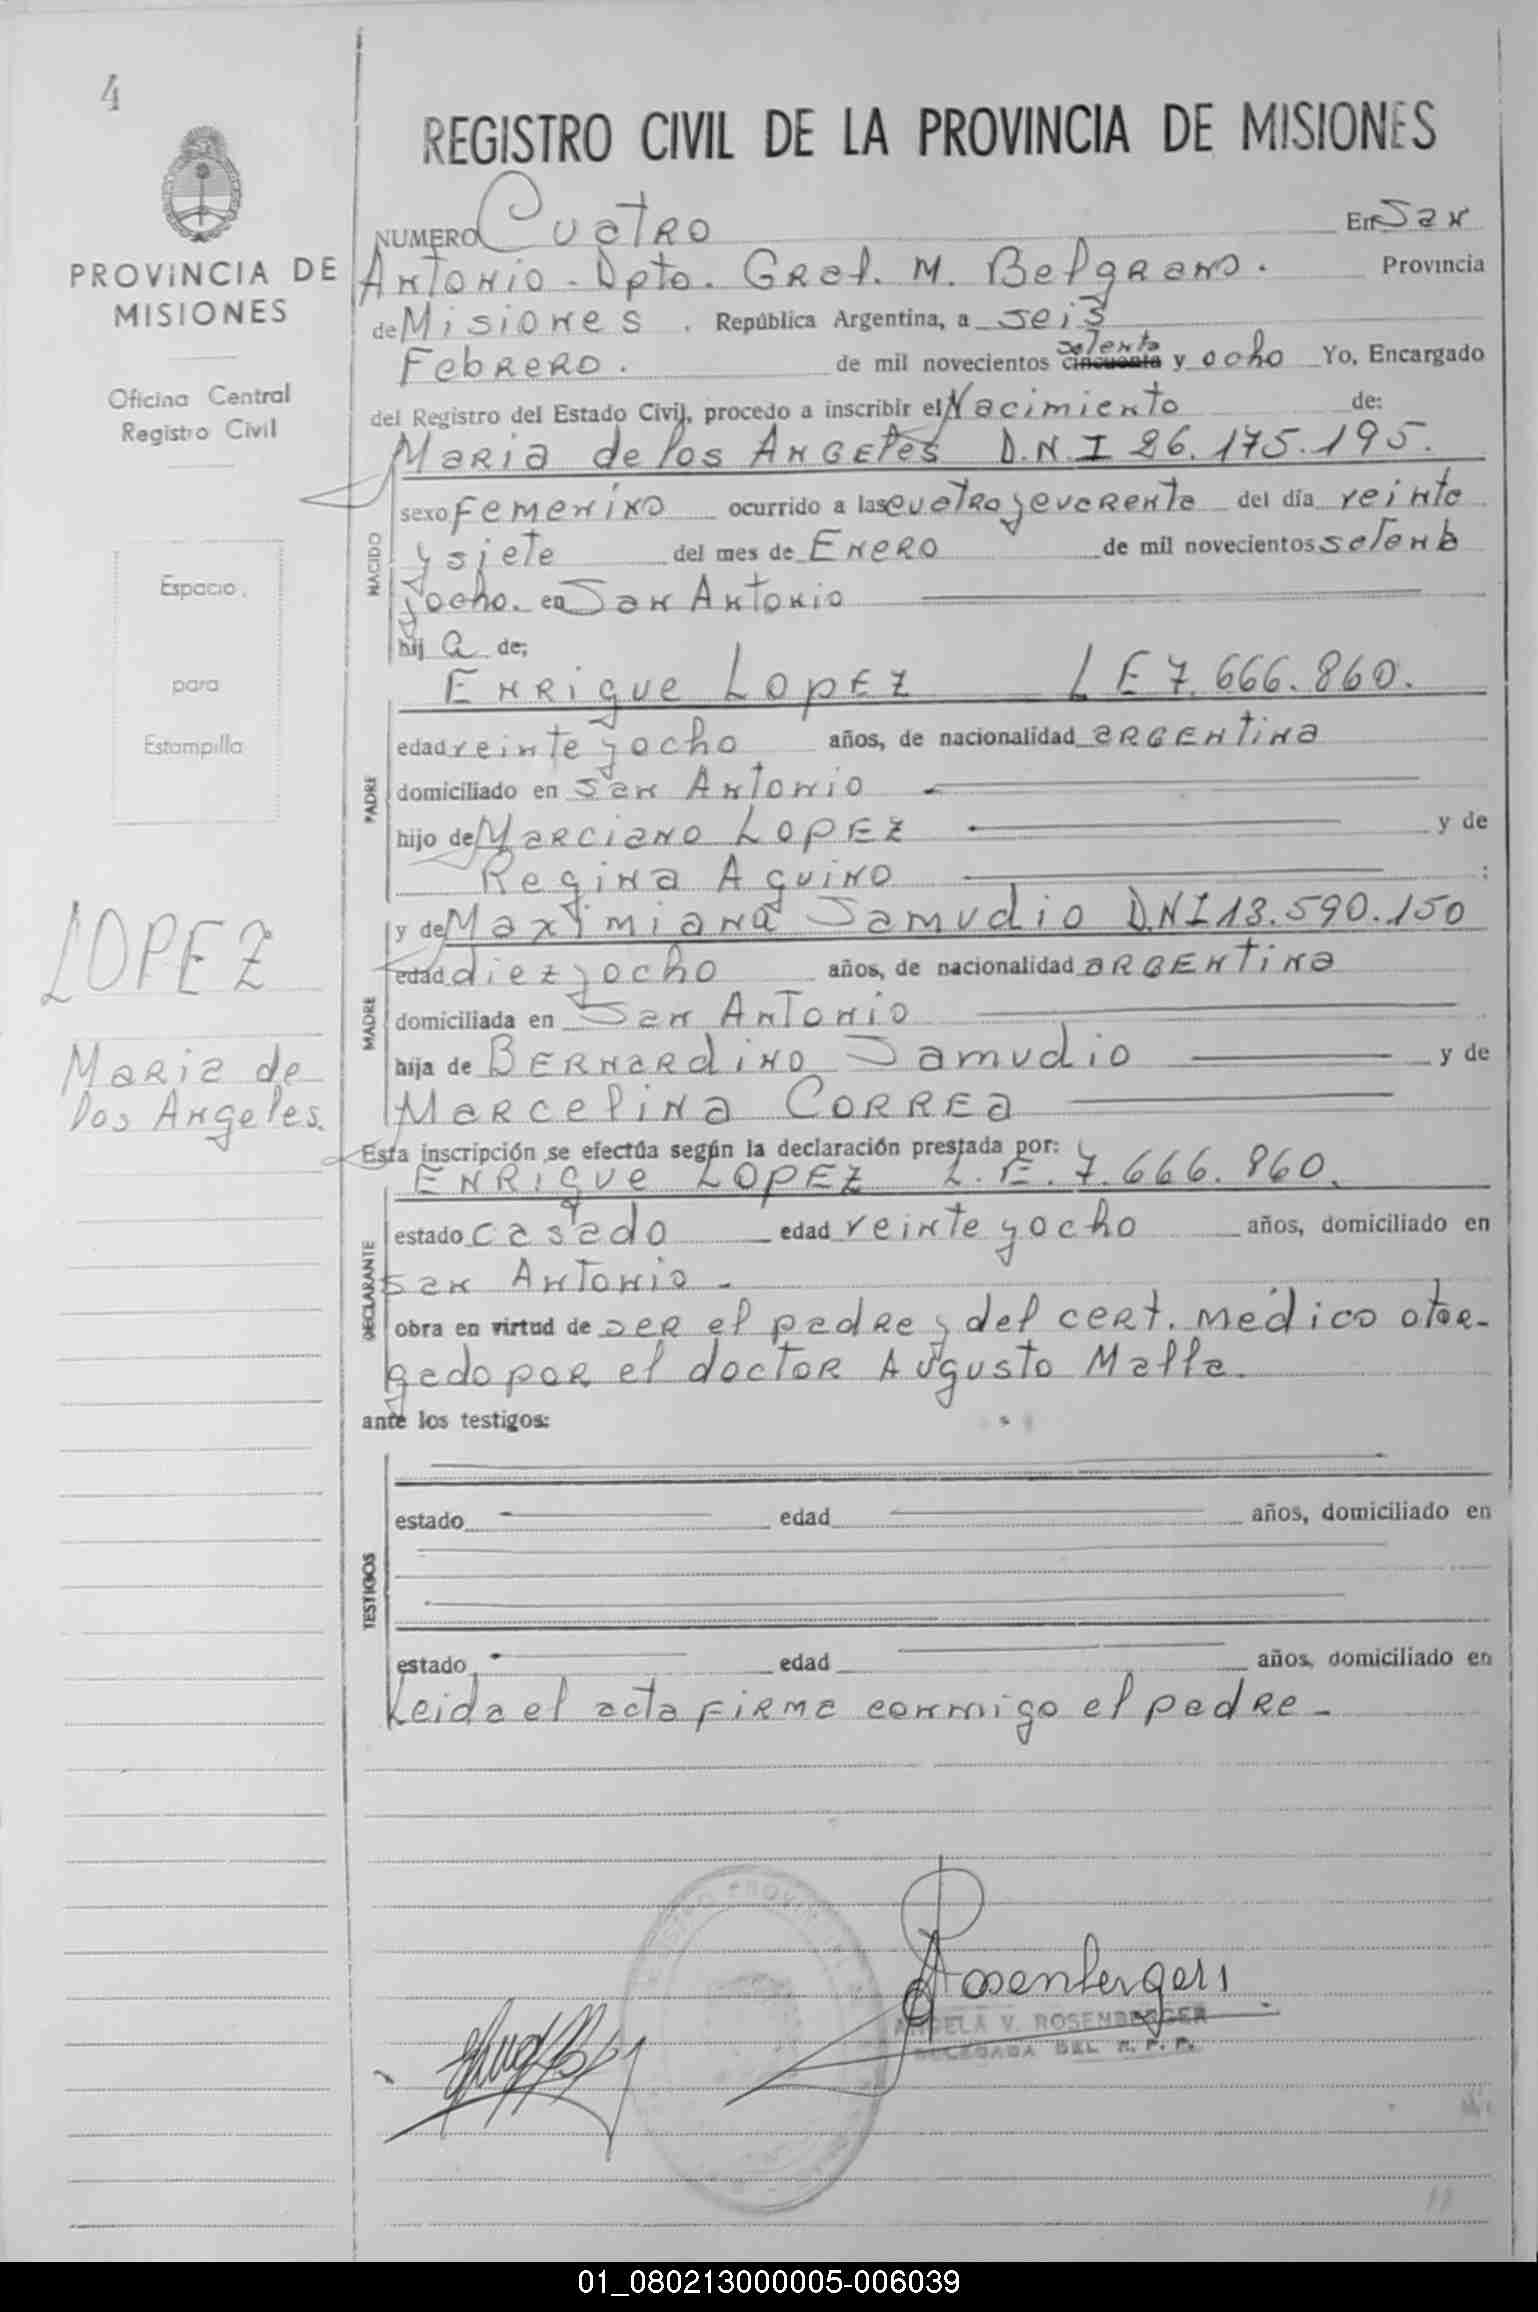 4
PROVINCIA DE
MISIONES
Oficina Central
Registro Civil
Espacio
para
Estampilla
LOPEZ
Maria de
los Angeles.
REGISTRO CIVIL DE LA PROVINCIA DE MISIONES
NUMERO Cuatro En San
Antonio - Dpto. Gral. M. Belgrano. Provincia
de Misiones. República Argentina, a seis
Febrero. de mil novecientos cincuenta setenta y ocho Yo, Encargado
del Registro del Estado Civil, procedo a inscribir el Nacimiento de:
Maria de los Angeles D.N.I 26.175.195.
NACIDO
sexo femenino ocurrido a las cuatro y cuarenta del día veinte
y siete del mes de Enero de mil novecientos setenta
y ocho. en San Antonio
hij a de;
Enrique Lopez LE 7.666.860.
PADRE
edad veinte y ocho años, de nacionalidad argentina
domiciliado en San Antonio
hijo de Marciano Lopez y de
Regina Aquino ;
y de Maximiana Samudio DNI 13.590.150
MADRE
edad diez y ocho años, de nacionalidad argentina
domiciliada en San Antonio
hija de Bernardino Samudio y de
Marcelina Correa
Esta inscripción se efectúa según la declaración prestada por:
Enrique Lopez L.E. 7.666.860.
DECLARANTE
estado casado edad veinte y ocho años, domiciliado en
San Antonio -
obra en virtud de ser el padre y del cert. médico otor-
gado por el doctor Augusto Malla.
ante los testigos:
TESTIGOS
estado edad años, domiciliado en
estado edad años, domiciliado en
Leida el acta firma conmigo el padre -
Rosenberger
ANGELA V. ROSENBERGER
DELEGADA DEL R. P. P.
01_080213000005-006039